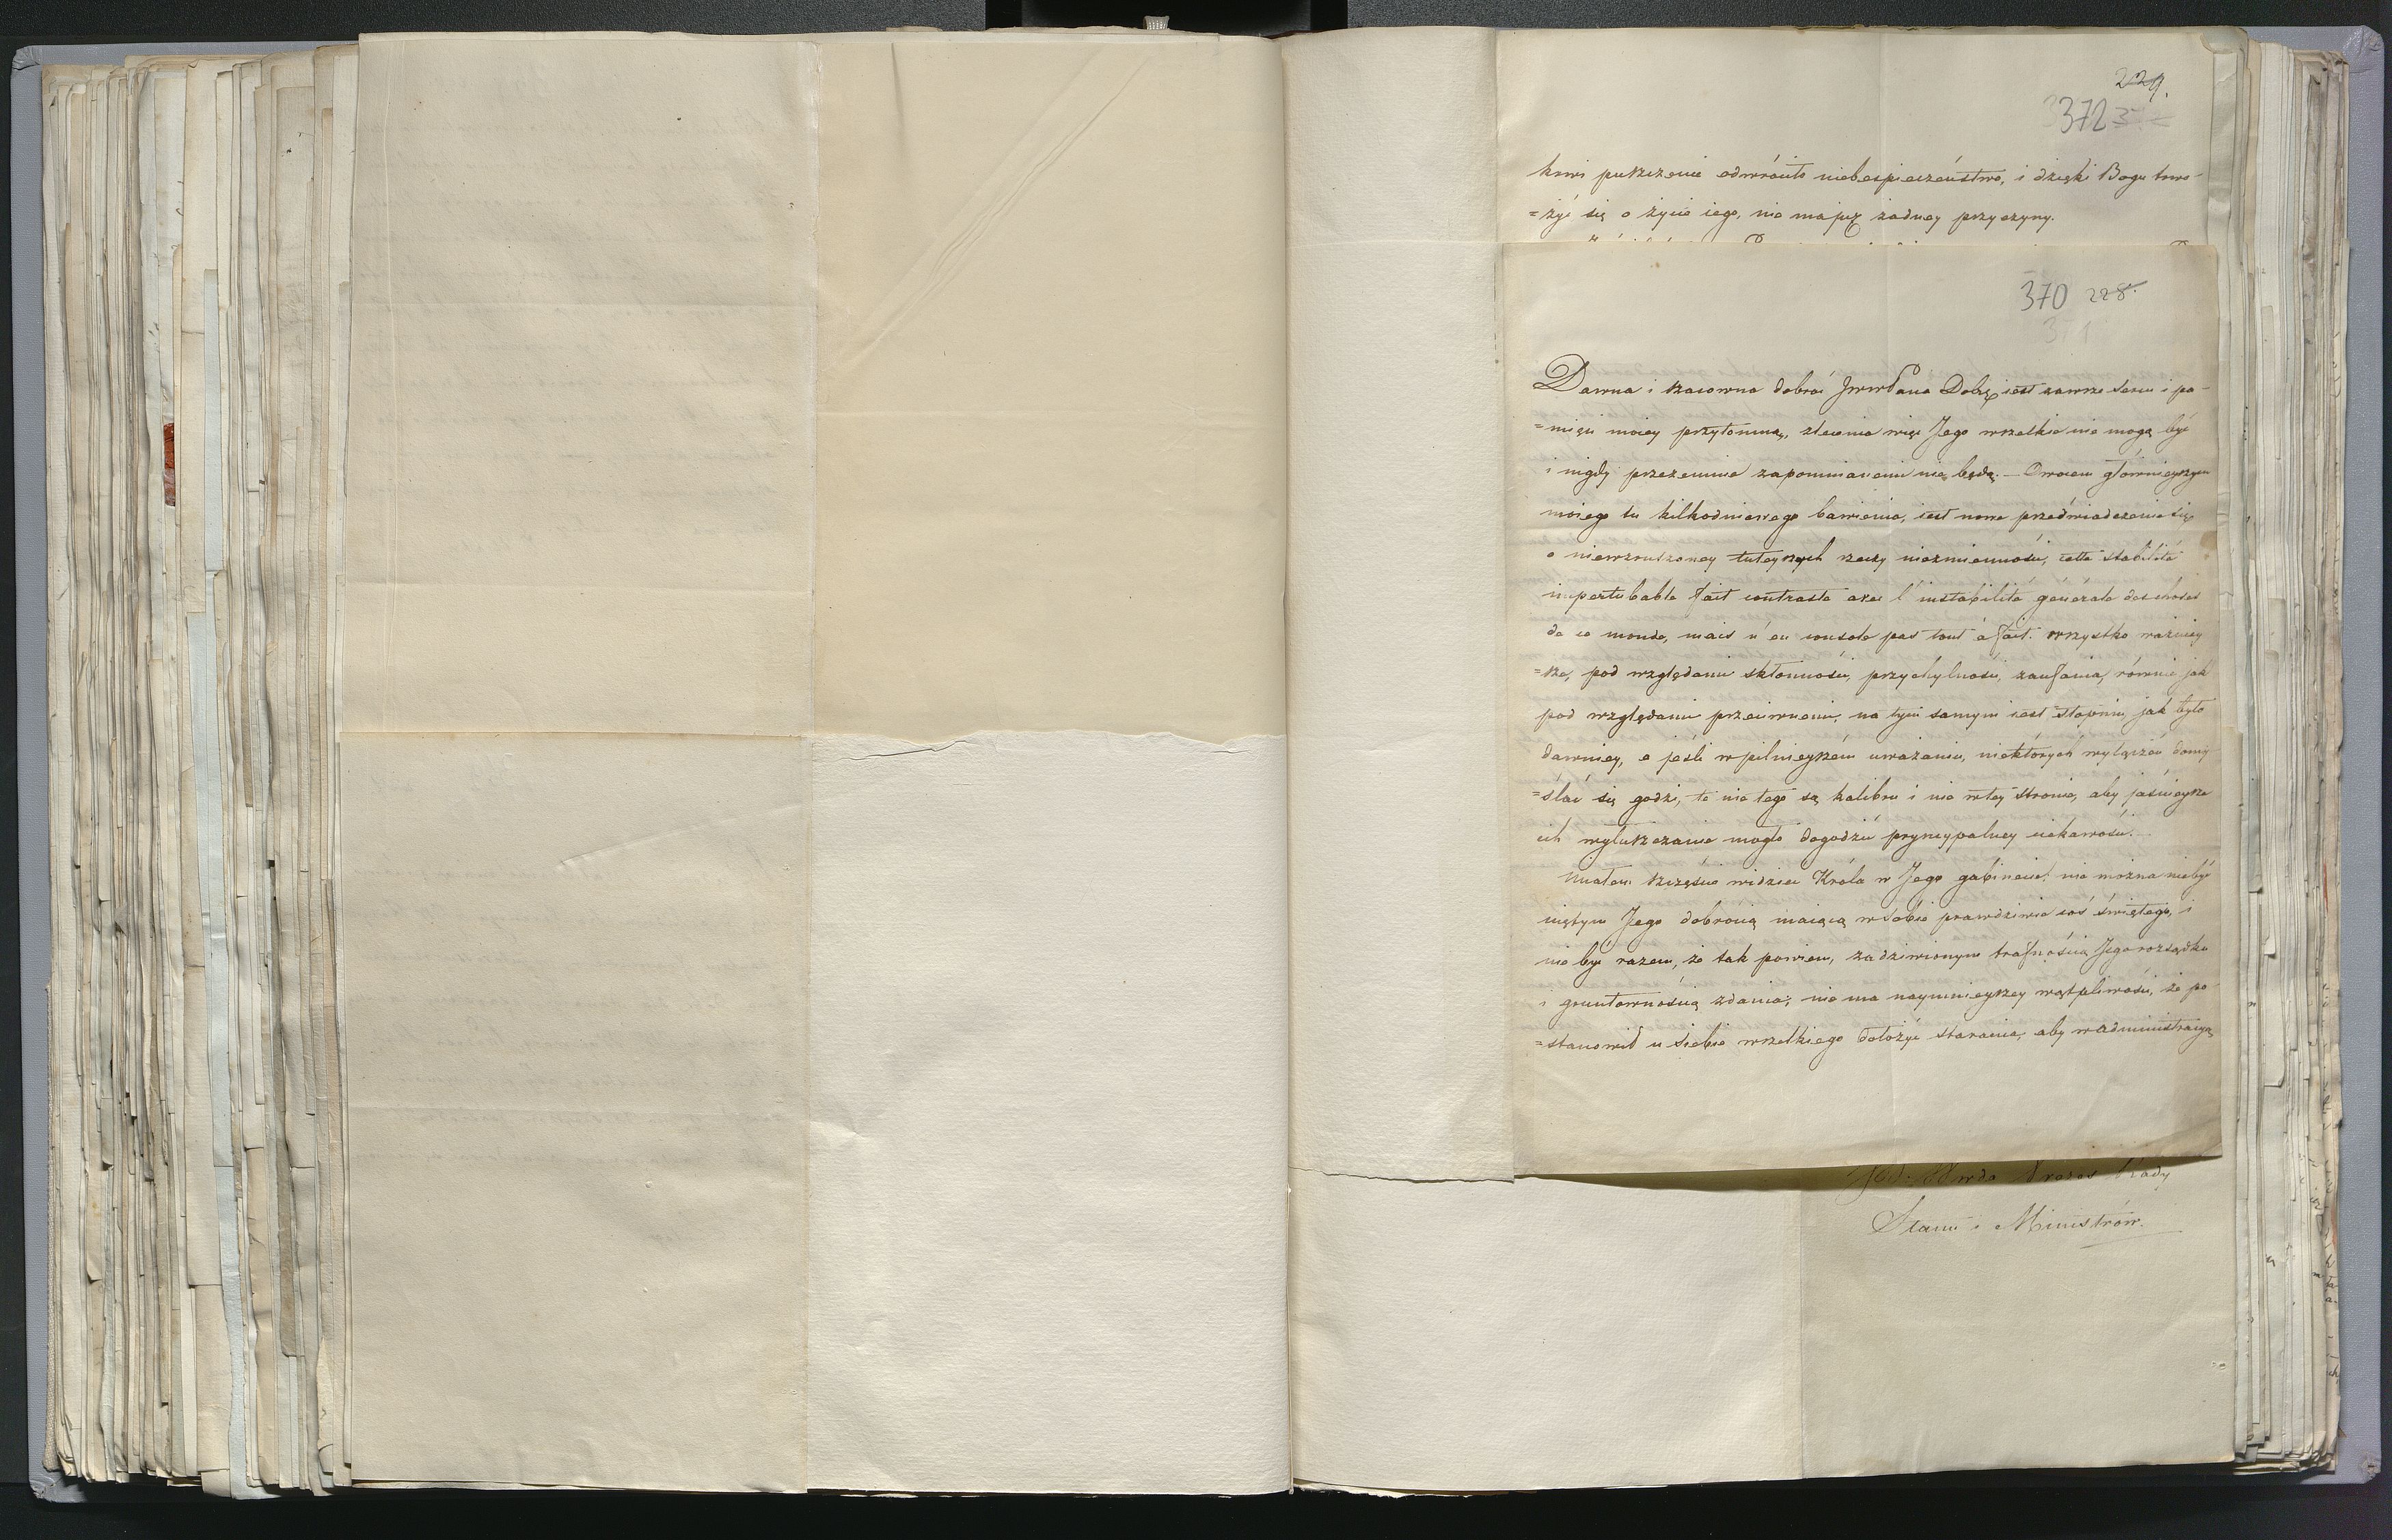 229.
372
krwi puszczenie odwróciło niebespieczeństwo, i dzięki Bogu trwo-
=żyć się o życie iego, nie mająç żadney przyczyny.
370 228.
371
Dawna i szacowna dobroć JWWPana Dobr. iest zawsze sercu i pa-
=mięci moiey przytomną, zlecenia więc Jego wszelkie nie mogą być
i nigdy przezemnie zapomnianemi nie będą. — Owocem głównieyszym
moiego tu kilkodniowego bawienia, iest nowe przeświadczenie się
o niewzruszoney tuteyszych rzeczy niezmienności, cette stabilité
impertubable fait contraste avec l'instabilité générale des choses
de ce monde, mais n'en console pas tout à fait. wszystko ważniey
=sze, pod względami skłonności, przychylności, zaufania, równie jak
pod względami przeciwnemi, na tym samym iest stopniu, jak było
dawniey, a jeśli w pilnieyszém uważaniu, niektórych wyłączeń domy
=ślać się godzi, te nie tego są kalibru i nie w tey stronie, aby jaśnieysze
ich wyłuszczanie mogło dogodzić pryncypalney ciekawości.
Miałem szczęście widzieć Króla w Jego gabinecie: nie można niebyć
ujętym Jego dobrocią maiącą w sobie prawdziwie coś świętego, i
nie być razem, że tak powiem, zadziwionym trafnością Jego rozsądku
i gruntownością zdania; nie ma naymnieyszey wątpliwości, że po-
=stanowił u siebie wszelkiego dołożyć starania, aby w administracyą
Prezes Rady
Stanu i Ministrów.